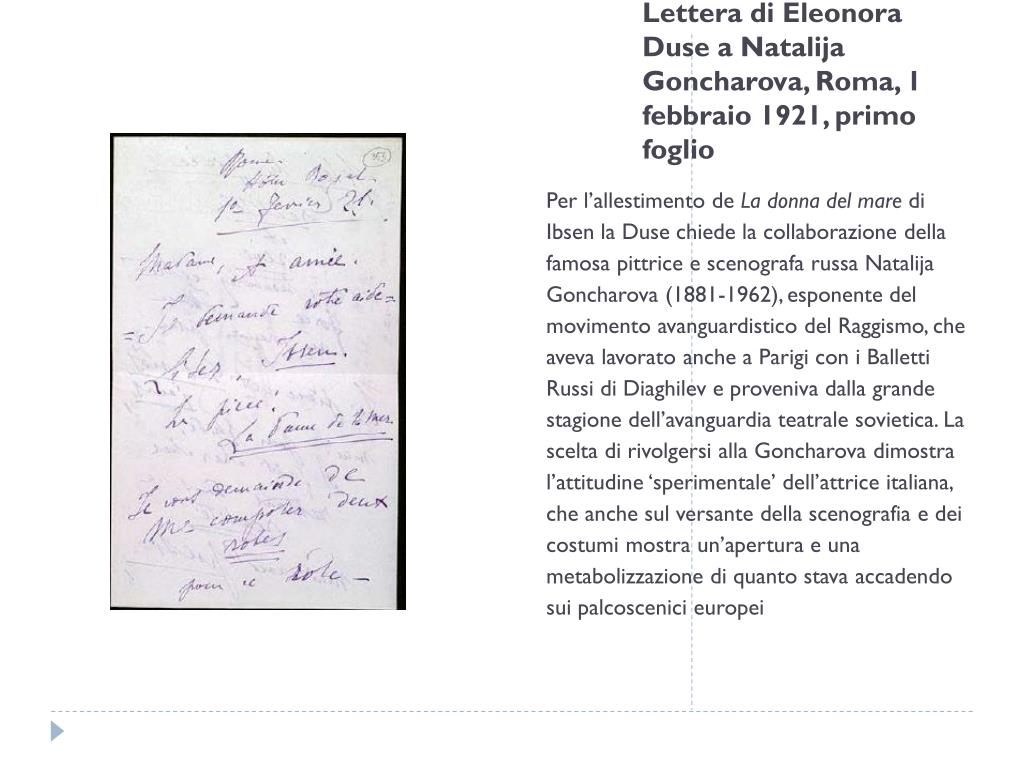 Lettera di Eleonora
Duse a Natalija
Goncharova, Roma, 1
febbraio 1921, primo
foglio
Rome.
Hôtel Royal.
1er Fevrier 21.
Madame, et amie.
Je demande votre aide
Ibsen.
La piece:
La Dame de la mer.
Je vous demande de
me composer deux
robes
pour ce rôle —
Per l’allestimento de La donna del mare di
Ibsen la Duse chiede la collaborazione della
famosa pittrice e scenografa russa Natalija
Goncharova (1881-1962), esponente del
movimento avanguardistico del Raggismo, che
aveva lavorato anche a Parigi con i Balletti
Russi di Diaghilev e proveniva dalla grande
stagione dell’avanguardia teatrale sovietica. La
scelta di rivolgersi alla Goncharova dimostra
l’attitudine ‘sperimentale’ dell’attrice italiana,
che anche sul versante della scenografia e dei
costumi mostra un’apertura e una
metabolizzazione di quanto stava accadendo
sui palcoscenici europei